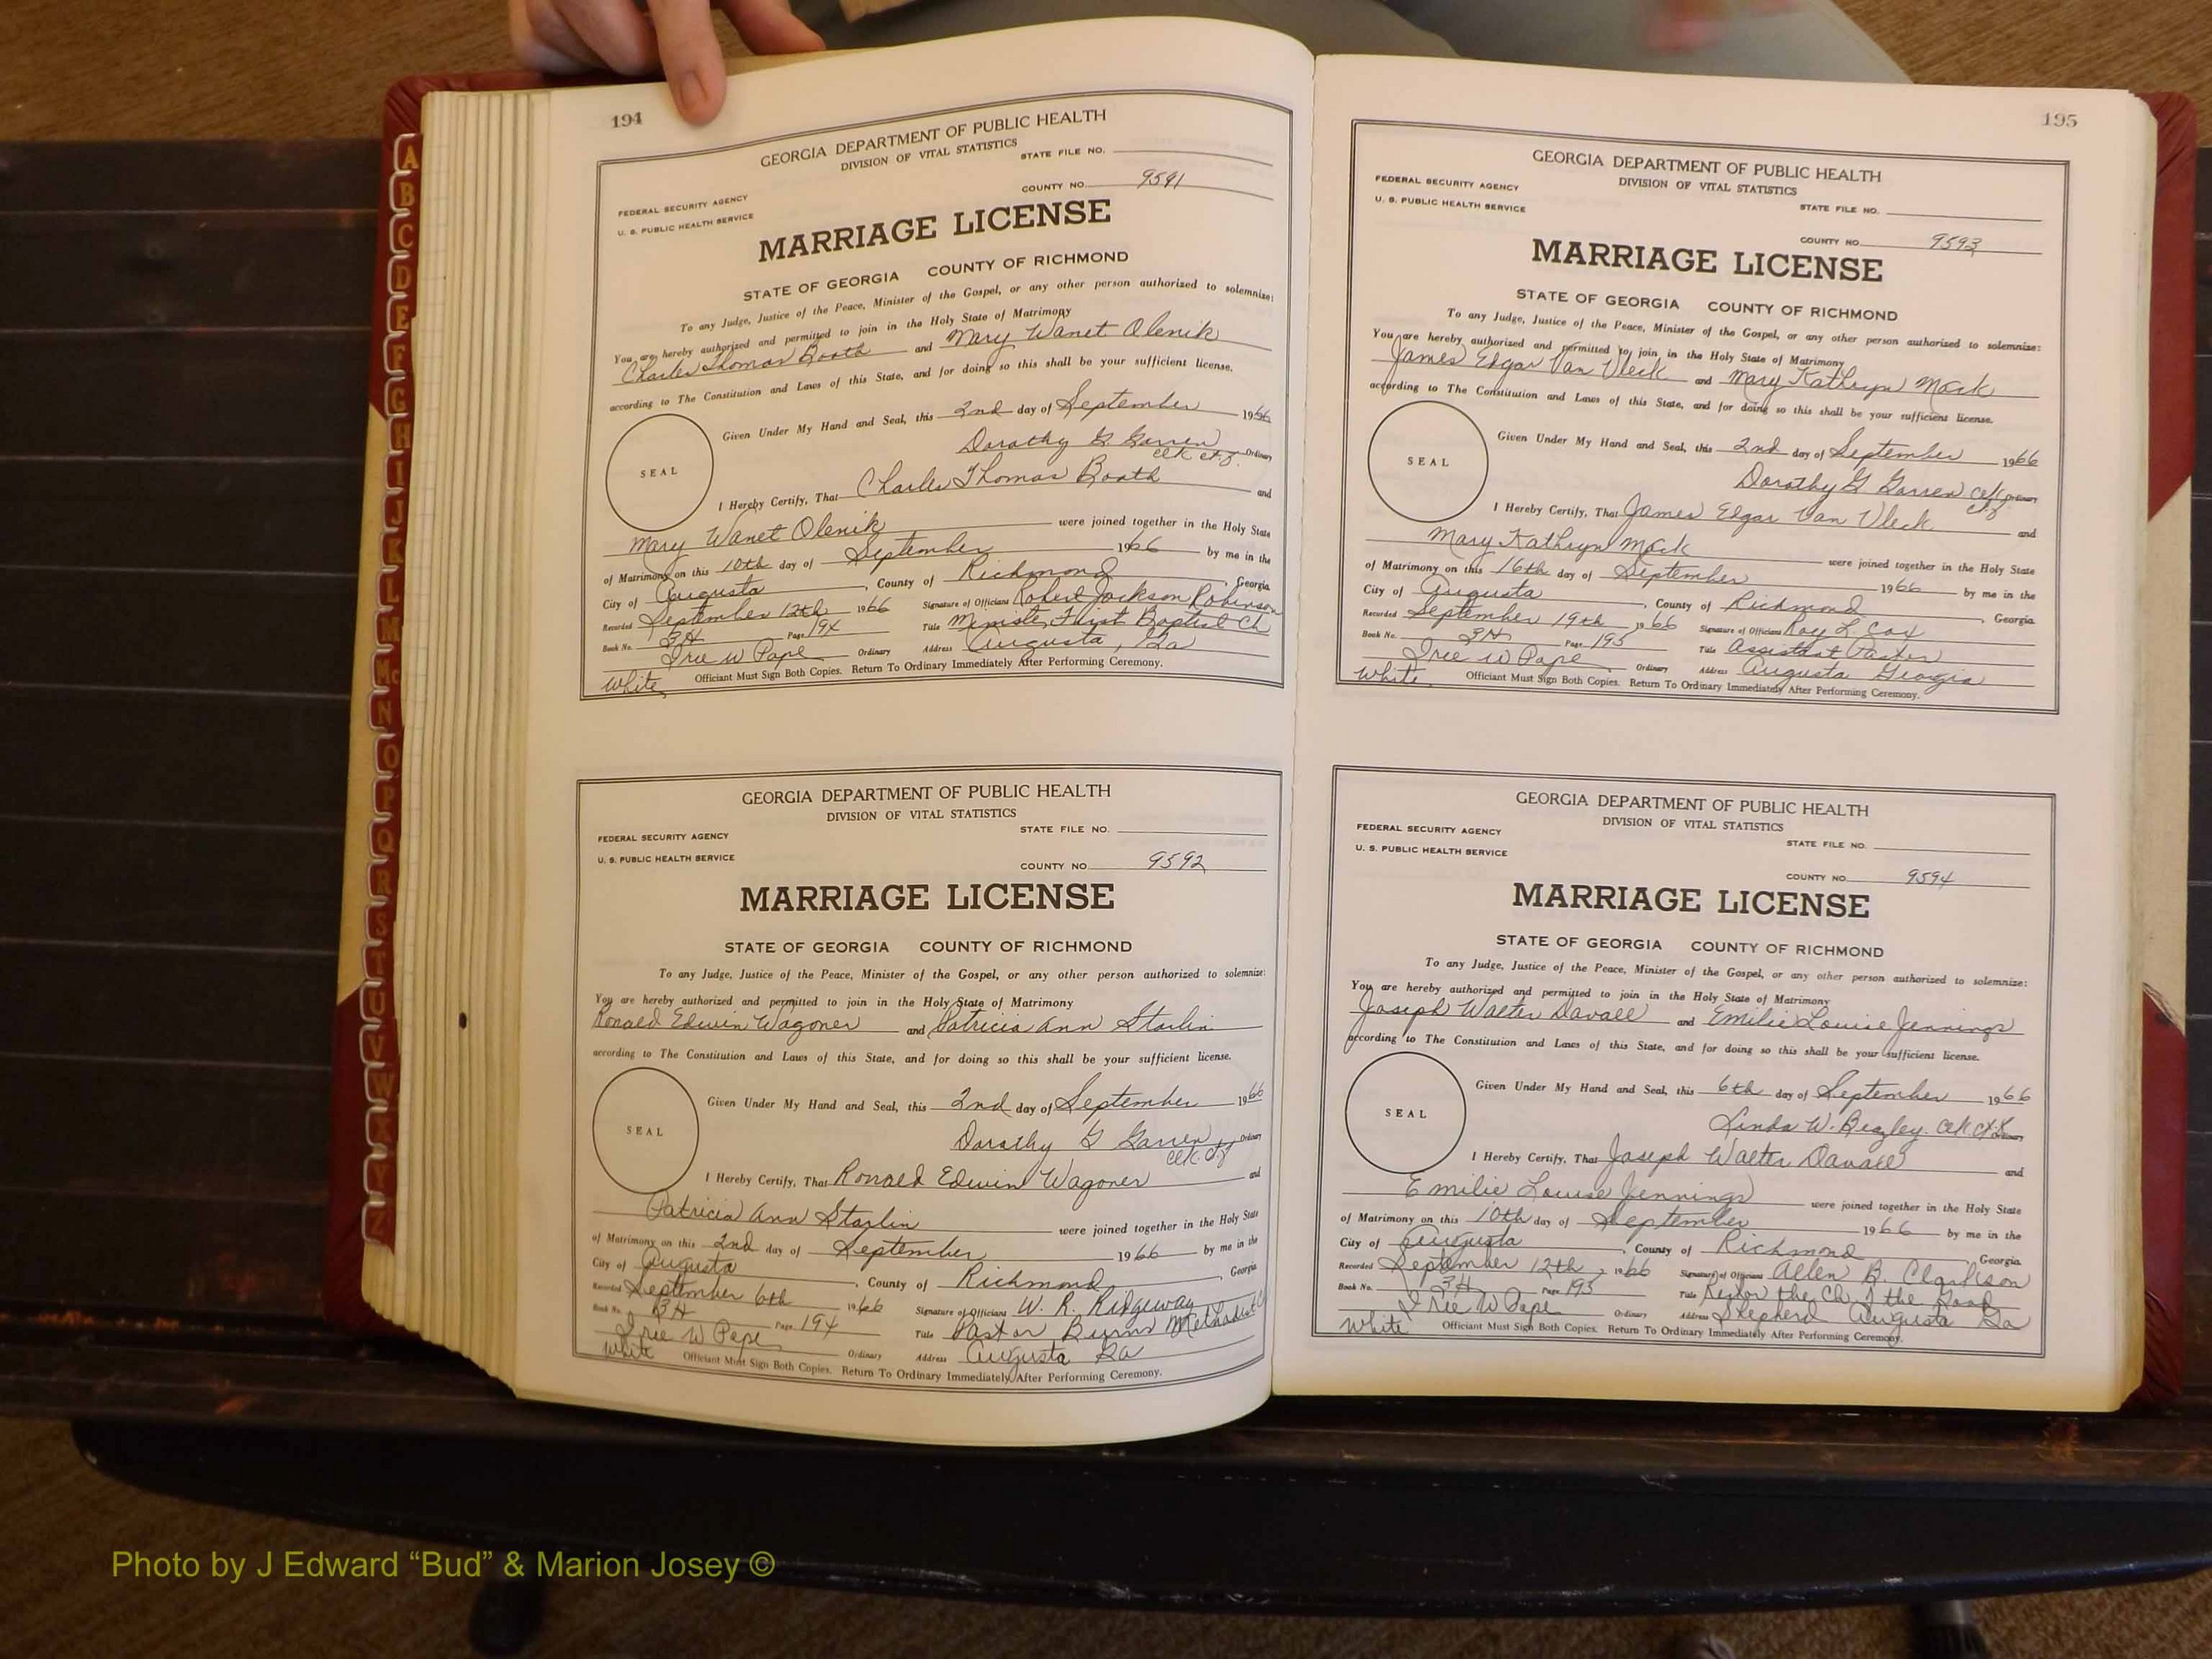 A
B
C
D
E
F
G
H
I
J
K
L
M
Mc
N
O
P
Q
R
S
T
U
V
W
X
Y
Z
194
GEORGIA DEPARTMENT OF PUBLIC HEALTH
DIVISION OF VITAL STATISTICS
STATE FILE NO.
FEDERAL SECURITY AGENCY
U. S. PUBLIC HEALTH SERVICE
COUNTY NO. 9591
MARRIAGE LICENSE
STATE OF GEORGIA COUNTY OF RICHMOND
To any Judge, Justice of the Peace, Minister of the Gospel, or any other person authorized to solemnize:
You are hereby authorized and permitted to join in the Holy State of Matrimony
Charles Thomas Booth and Mary Wanet Olenik
according to The Constitution and Laws of this State, and for doing so this shall be your sufficient license.
Given Under My Hand and Seal, this 2nd day of September 1966
Dorothy G. Garren
clk ct. Ordinary
SEAL
I Hereby Certify, That Charles Thomas Booth and
Mary Wanet Olenik were joined together in the Holy State
of Matrimony on this 10th day of September 1966 by me in the
City of Augusta, County of Richmond, Georgia
Recorded September 12th 1966 Signature of Officiant Robert Jackson Robinson
Book No. 3H Page 194 Title Minister First Baptist Ch
Iree W Pape Ordinary Address Augusta, Ga
White Officiant Must Sign Both Copies. Return To Ordinary Immediately After Performing Ceremony.
GEORGIA DEPARTMENT OF PUBLIC HEALTH
DIVISION OF VITAL STATISTICS
STATE FILE NO.
FEDERAL SECURITY AGENCY
U. S. PUBLIC HEALTH SERVICE
COUNTY NO. 9592
MARRIAGE LICENSE
STATE OF GEORGIA COUNTY OF RICHMOND
To any Judge, Justice of the Peace, Minister of the Gospel, or any other person authorized to solemnize:
You are hereby authorized and permitted to join in the Holy State of Matrimony
Ronald Edwin Wagoner and Patricia Ann Starlin
according to The Constitution and Laws of this State, and for doing so this shall be your sufficient license.
Given Under My Hand and Seal, this 2nd day of September 1966
Dorothy G Garren
clk. ct. Ordinary
SEAL
I Hereby Certify, That Ronald Edwin Wagoner and
Patricia Ann Starlin were joined together in the Holy State
of Matrimony on this 2nd day of September 1966 by me in the
City of Augusta, County of Richmond, Georgia
Recorded September 6th 1966 Signature of Officiant W. R. Ridgeway
Book No. 3H Page 194 Title Pastor Burns Methodist
Iree W Pape Ordinary Address Augusta Ga
White Officiant Must Sign Both Copies. Return To Ordinary Immediately After Performing Ceremony.
195
GEORGIA DEPARTMENT OF PUBLIC HEALTH
DIVISION OF VITAL STATISTICS
FEDERAL SECURITY AGENCY
U. S. PUBLIC HEALTH SERVICE
STATE FILE NO.
COUNTY NO. 9593
MARRIAGE LICENSE
STATE OF GEORGIA COUNTY OF RICHMOND
To any Judge, Justice of the Peace, Minister of the Gospel, or any other person authorized to solemnize:
You are hereby authorized and permitted to join in the Holy State of Matrimony
James Elgar Van Vleck and Mary Kathryn Mock
according to The Constitution and Laws of this State, and for doing so this shall be your sufficient license.
Given Under My Hand and Seal, this 2nd day of September 1966
Dorothy G Garren clk Ordinary
SEAL
I Hereby Certify, That James Elgar Van Vleck and
Mary Kathryn Mock were joined together in the Holy State
of Matrimony on this 16th day of September 1966 by me in the
City of Augusta, County of Richmond, Georgia
Recorded September 19th 1966 Signature of Officiant Roy L. Cox
Book No. 3H Page 195 Title Assistant Pastor
Iree W Pape Ordinary Address Augusta Georgia
White Officiant Must Sign Both Copies. Return To Ordinary Immediately After Performing Ceremony.
GEORGIA DEPARTMENT OF PUBLIC HEALTH
DIVISION OF VITAL STATISTICS
FEDERAL SECURITY AGENCY
U. S. PUBLIC HEALTH SERVICE
STATE FILE NO.
COUNTY NO. 9594
MARRIAGE LICENSE
STATE OF GEORGIA COUNTY OF RICHMOND
To any Judge, Justice of the Peace, Minister of the Gospel, or any other person authorized to solemnize:
You are hereby authorized and permitted to join in the Holy State of Matrimony
Joseph Walter Davall and Emilie Louise Jennings
according to The Constitution and Laws of this State, and for doing so this shall be your sufficient license.
Given Under My Hand and Seal, this 6th day of September 1966
Linda W. Beazley clk ct Ordinary
SEAL
I Hereby Certify, That Joseph Walter Davall and
Emilie Louise Jennings were joined together in the Holy State
of Matrimony on this 10th day of September 1966 by me in the
City of Augusta, County of Richmond, Georgia
Recorded September 12th, 1966 Signature of Officiant Allen B. Clarkson
Book No. 3H Page 195 Title Rector the Ch. of the Good
Iree W Pape Ordinary Address Shepherd Augusta Ga
White Officiant Must Sign Both Copies. Return To Ordinary Immediately After Performing Ceremony.
Photo by J Edward “Bud” & Marion Josey ©